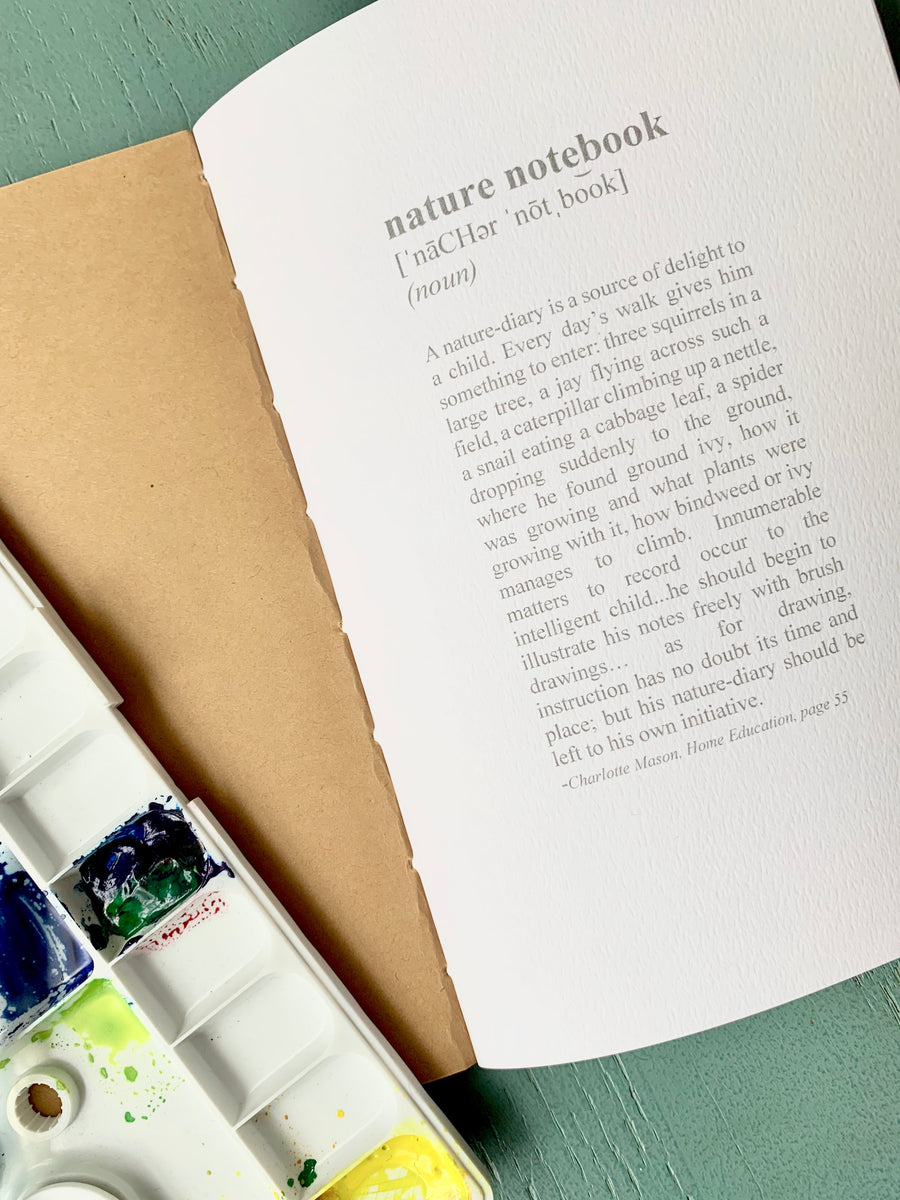 nature notebook
[ˈnāCHər ˈnōtˌbo͝ok]
(noun)
A nature-diary is a source of delight to
a child. Every day’s walk gives him
something to enter: three squirrels in a
large tree, a jay flying across such a
field, a caterpillar climbing up a nettle,
a snail eating a cabbage leaf, a spider
dropping suddenly to the ground,
where he found ground ivy, how it
was growing and what plants were
growing with it, how bindweed or ivy
manages to climb. Innumerable
matters to record occur to the
intelligent child...he should begin to
illustrate his notes freely with brush
drawings... as for drawing,
instruction has no doubt its time and
place; but his nature-diary should be
left to his own initiative.
-Charlotte Mason, Home Education, page 55